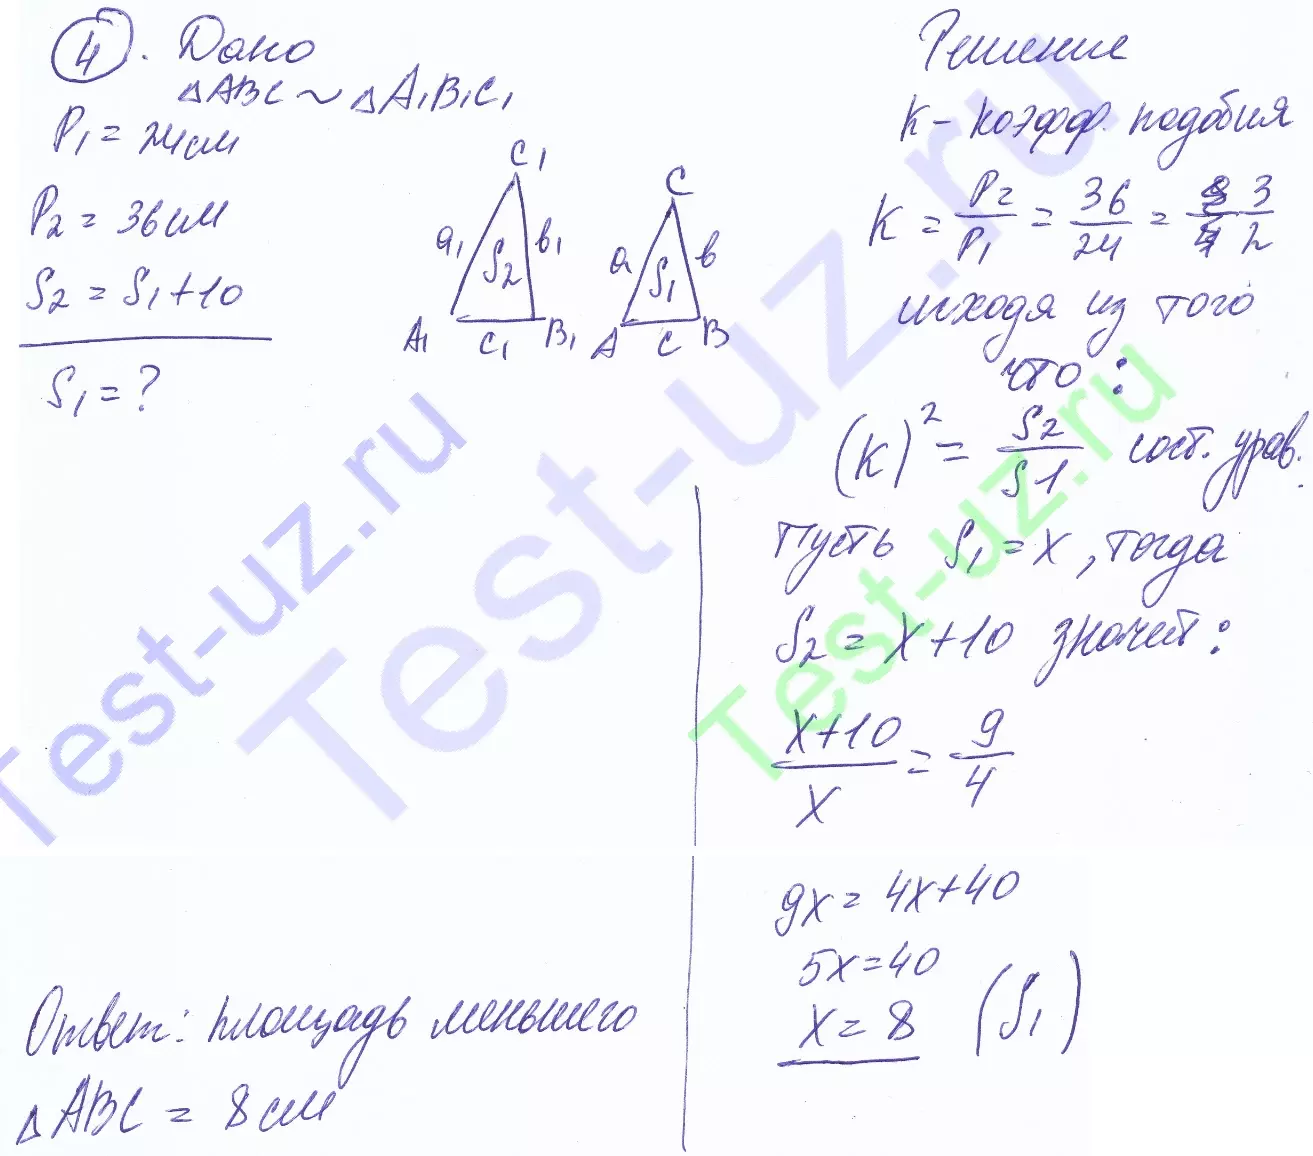 4. Дано
△ABC ~ △A₁B₁C₁
P₁ = 24см
P₂ = 36см
S₂ = S₁+10
S₁ = ?
C₁
a₁ S₂ b₁
A₁ C₁ B₁
C
a S₁ b
A C B
Решение
K – коэфф. подобия
K = P₂/P₁ = 36/24 = 3/2
исходя из того
что:
(K)² = S2/S1 сост. урав.
Пусть S₁ = X, тогда
S₂ = X+10 значит:
X+10/X = 9/4
9X = 4X+40
5X=40
X = 8 (S₁)
Ответ: площадь меньшего
△ABC = 8см
Test-uz.ru
Test-uz.ru
Test-uz.ru